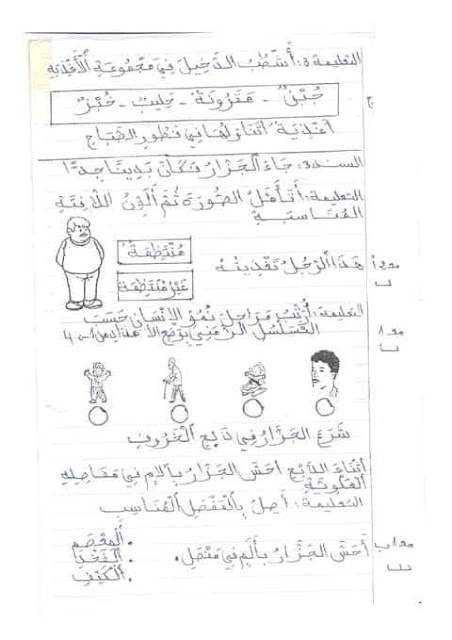 التعليمة 3: أشطب الدخيل في مجموعة الأغذية
جُبْنٌ - مَقَرُونَةٌ - حليب - خُبْزٌ
أغذية أتناولها في فطور الصباح
السند 3: جاء الجزار فكان بدينا جدا
التعليمة: أتأمل الصورة ثم ألون اللافتة
المناسبة
مُنْتَظِمَةٌ
هذا الرجل تغذيته
غير منتظمة
التعليمة: أرتب مراحل نمو الإنسان حسب
التسلسل الزمني بوضع الأعداد من 1 إلى 4
شرع الجزار في ذبح الخروف
أثناء الذبح أحس الجزار بألام في مفاصله
العلوية
التعليمة: أصل بالمفصل المناسب
. المعصم
أحس الجزار بألم في مفصل . . الفخذ
. الكتف